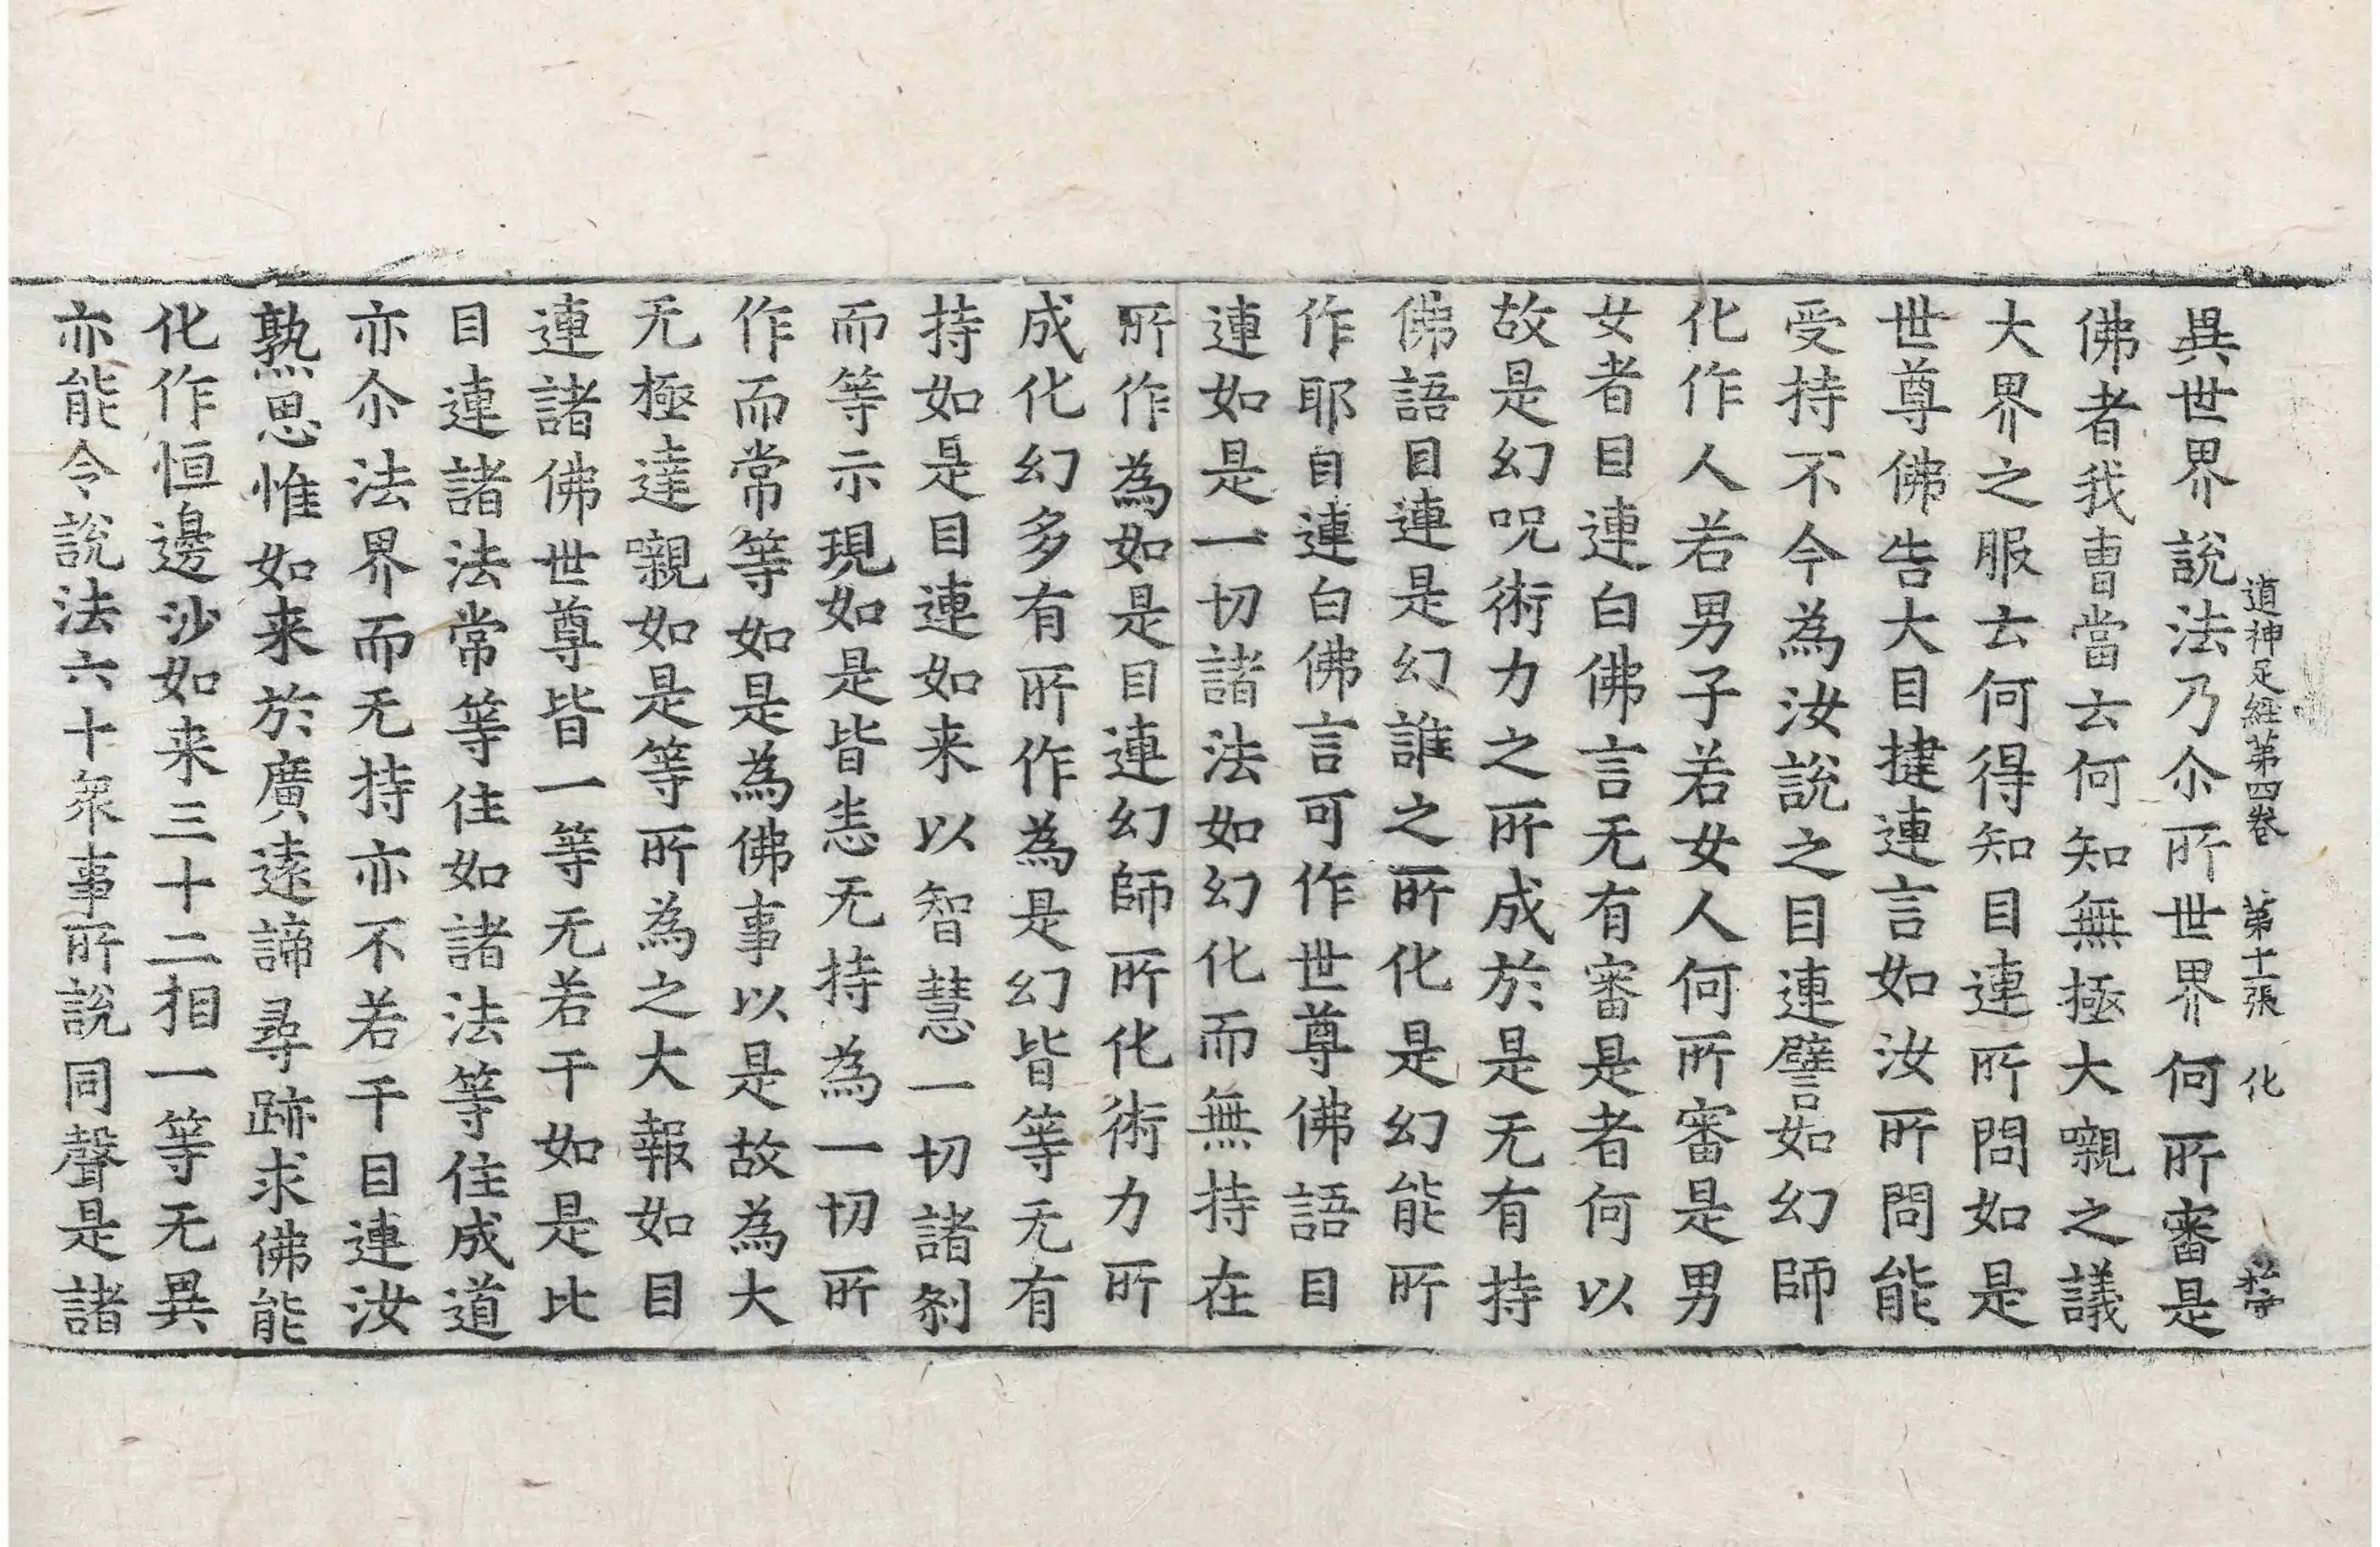 道神足經第四卷　第十一張　化
異世界說法乃尒所世界何所審是
佛者我曹當云何知無極大嚫之議
大界之服云何得知目連所問如是
世尊佛告大目揵連言如汝所問能
受持不今為汝說之目連譬如幻師
化作人若男子若女人何所審是男
女者目連白佛言无有審是者何以
故是幻呪術力之所成於是无有持
佛語目連是幻誰之所化是幻能所
作耶目連白佛言可作世尊佛語目
連如是一切諸法如幻化而無持在
所作為如是目連幻師所化術力所
成化幻多有所作為是幻皆等无有
持如是目連如来以智慧一切諸剎
而等示現如是皆恚无持為一切所
作而常等如是為佛事以是故為大
无極達嚫如是等所為之大報如目
連諸佛世尊皆一等无若干如是比
目連諸法常等住如諸法等住成道
亦尒法界而无持亦不若干目連汝
熟思惟如来於廣遠諦尋跡求佛能
化作恒邊沙如来三十二相一等无異
亦能令說法六十衆事所說同聲是諸